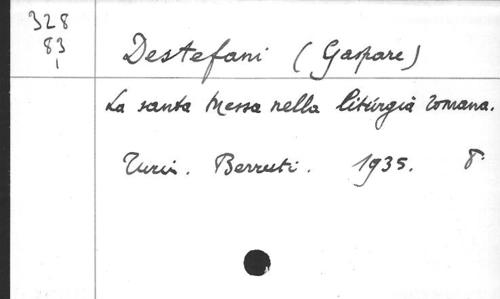 328
83
1
Destefani (Gaspare)
La santa Messa nella liturgia romana.
Turin. Berruti. 1935. 8°